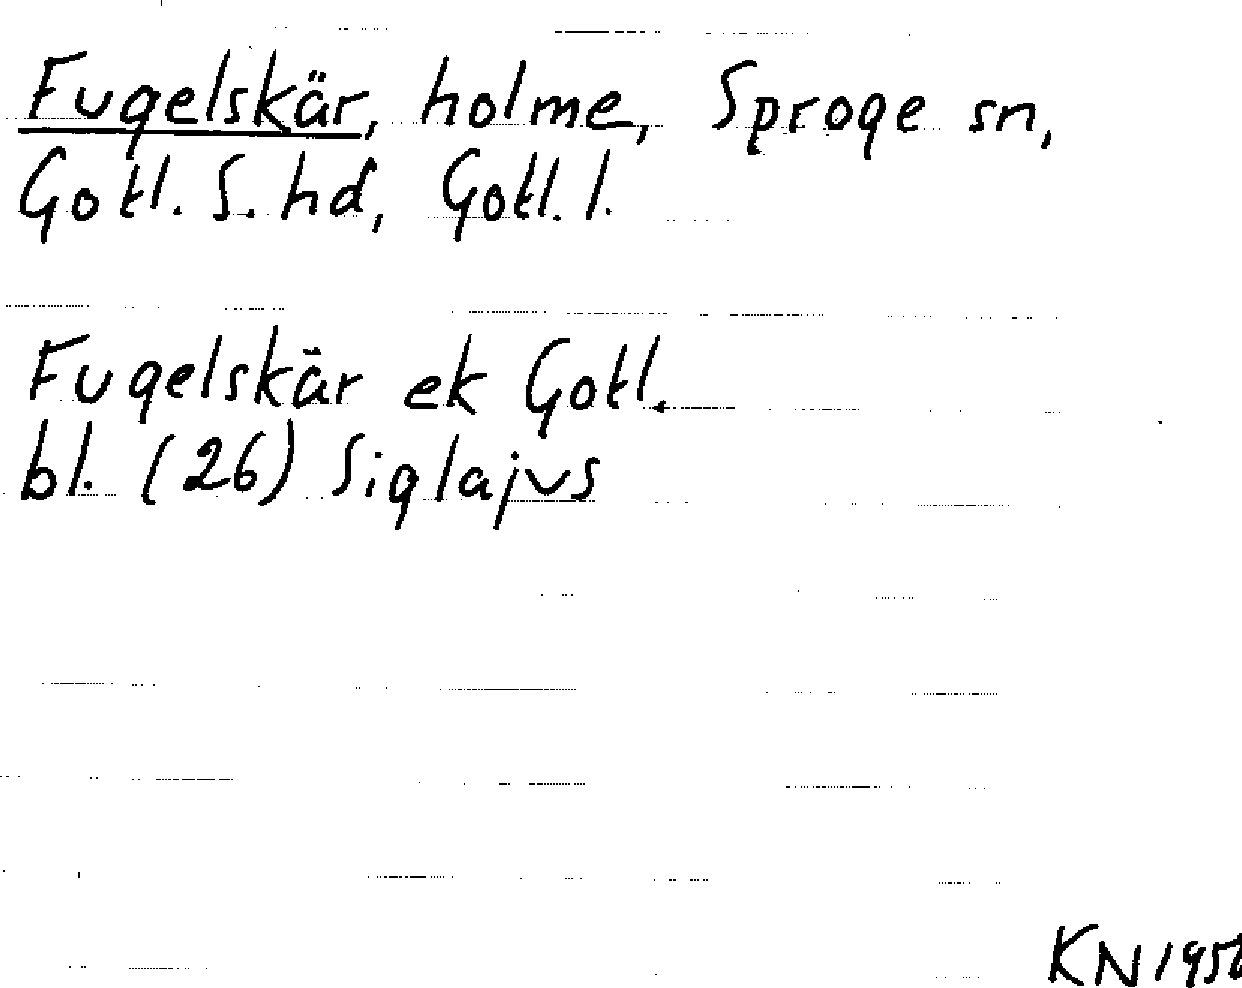 Fugelskär, holme, Sproge sn,
Gotl. S. hd, Gotl. l.
Fugelskär ek Gotl.
bl. (26) Siglajvs
KN